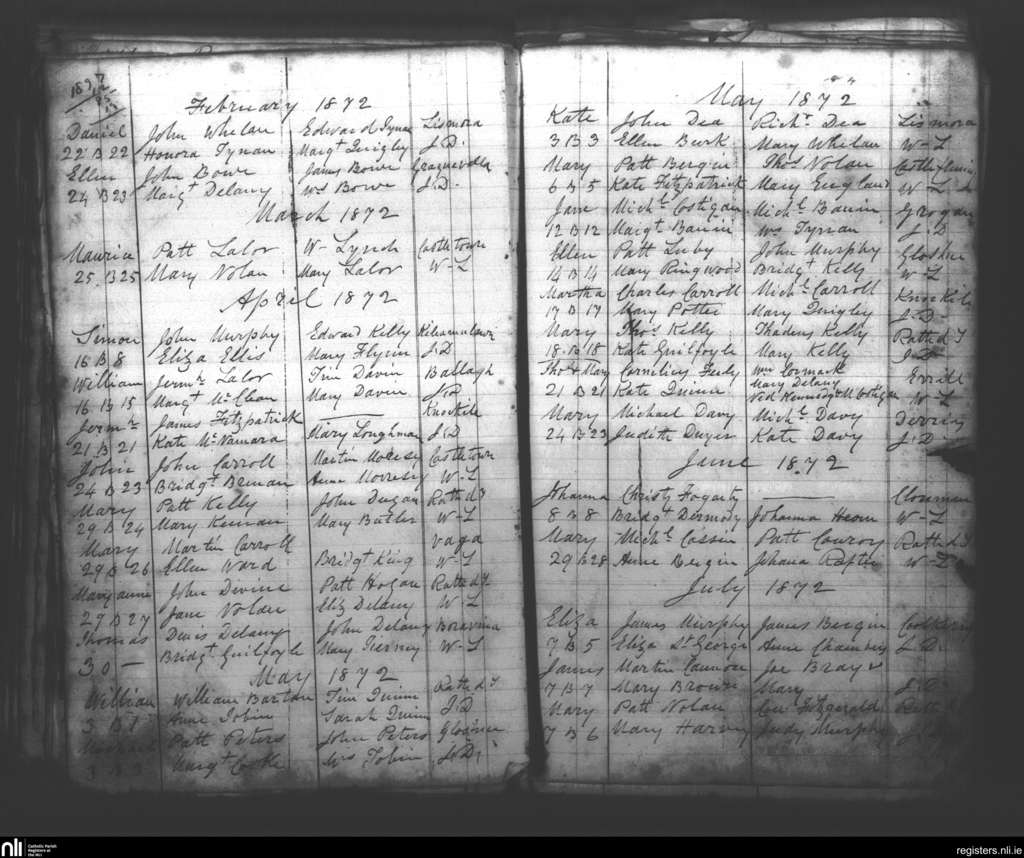 February 1872
Daniel John Whelan Edward Tynan Lismora
22 B 22 Honora Tynan Margt Quigly J.D.
Ellen John Bowe James Bowe
24 B 23 Margt Delany Ws Bowe J.D.
March 1872
Patt Lalor W- Lynch Castletown
25 B 25 Mary Nolan Mary Lalor W-L
April 1872
Simon John Murphy Edward Kelly
16 B 8 Eliza Ellis Mary Flynn J.D
William Jermh Lalor Tim Davin Ballagh
16 B 15 Margt McClean Mary Davin
Jermh James Fitzpatrick — Knockile
21 B 21 Kate McNamara Mary Loughman J.D
John John Carroll Martin Castletown
24 B 23 Bridgt Brenan Anne W-L
Mary Patt Kelly John Dugan Rathd
29 B 24 Mary Keenan Mary Butler W-L
Mary Martin Carroll vaga
29 B 26 Ellen Ward Bridgt King W-L
Maryanne John Divine Patt Hogan Rathd
29 B 27 Jane Nolan Eliz Delany W-L
Thomas Denis Delany John Delany
30 — Bridgt Guilfoyle Mary Tierney W-L
May 1872
William William Barton Tim Quinn Rathd
3 B 1 Anne Tobin Sarah Quinn J.D
Michael Patt Peters John Peters
3 B 3 Margt Cooke Ws Tobin J.D.
May 1872
Kate John Dea Richd Dea Lismora
3 B 3 Ellen Burk Mary Whelan W-L
Mary Patt Bergin Thos Nolan
6 B 5 Kate Fitzpatrick Mary England W-L
Jane Michl Costigan Michl Bannin Grogan
12 B 12 Margt Bannin Ws Tynan J.D
Ellen Patt Luby John Murphy
14 B 14 Mary Ringwood Bridgt Kelly W-L
Martha Charles Carroll Michl Carroll
17 B 17 Mary Potter Mary Quigley J.D-
Mary Thos Kelly Thadeus Kelly Rathd
18 B 18 Kate Guilfoyle Mary Kelly J.D-
Thos & Mary Cornelius Wm Cormack Errill
Mary Delany
21 B 21 Kate Quinn Ned Kennedy & M Costigan W-L
Mary Michael Davy Michl Davy
24 B 23 Judith Dwyer Kate Davy J.D-
June 1872
Johanna Christy Fogarty —
8 B 8 Bridgt Dermody Johanna W-L
Mary Michl Cassin Patt Conroy Rathd
29 B 28 Anne Bergin Johana W-L
July 1872
Eliza James Murphy James Bergin
7 B 5 Eliza St George Anne J.D.
James Martin Cannon Joe Bray
7 B 7 Mary Brown Mary J.D
Mary Patt Nolan Fitzgerald
7 B 6 Mary Harvey Judy Murphy
nli
Catholic Parish
Registers at
the NLI
registers.nli.ie